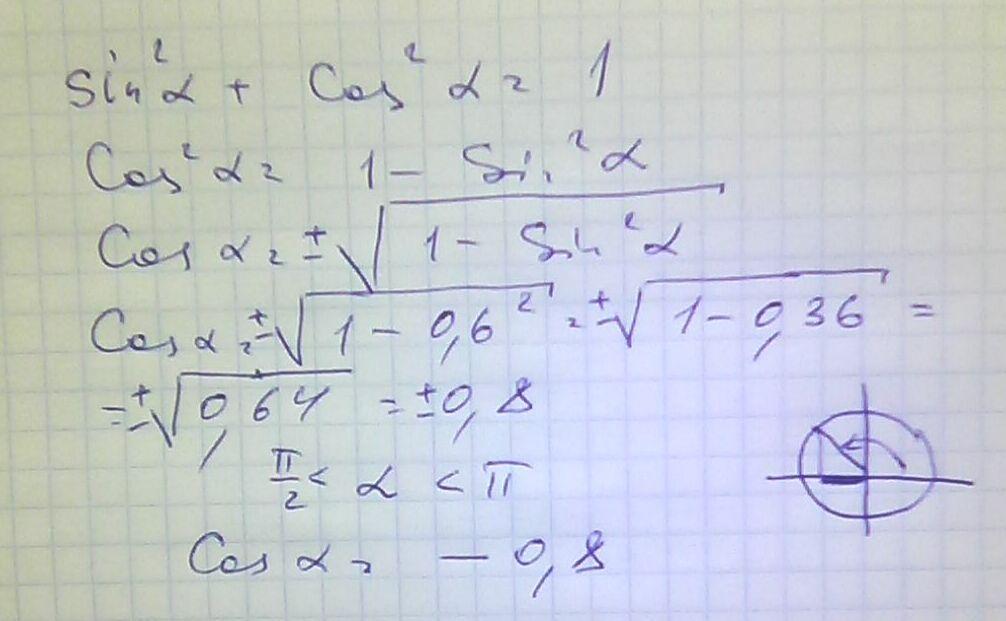 sin²α + cos²α = 1
cos²α = 1 - sin²α
cos α = ±√(1 - sin²α)
cos α = ±√(1 - 0,6²) = ±√(1 - 0,36) =
= ±√(0,64) = ±0,8
π/2 < α < π
cos α = - 0,8